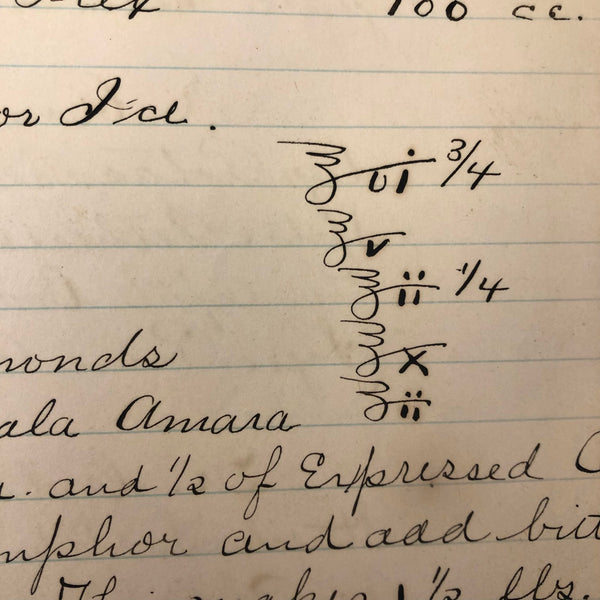 100 cc.
or I'd.
℥ vi 3/4
℥ v
℥ ii 1/4
℥ x
monds
℥ ii
ala Amara
and 1/2 of Expressed
mphor and add bitt
This makes 1 1/2 lbs.